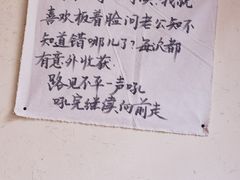 喜欢板着脸问老公知不
知道错哪儿了？每次都
有意外收获
路见不平一声吼
吼完继续向前走